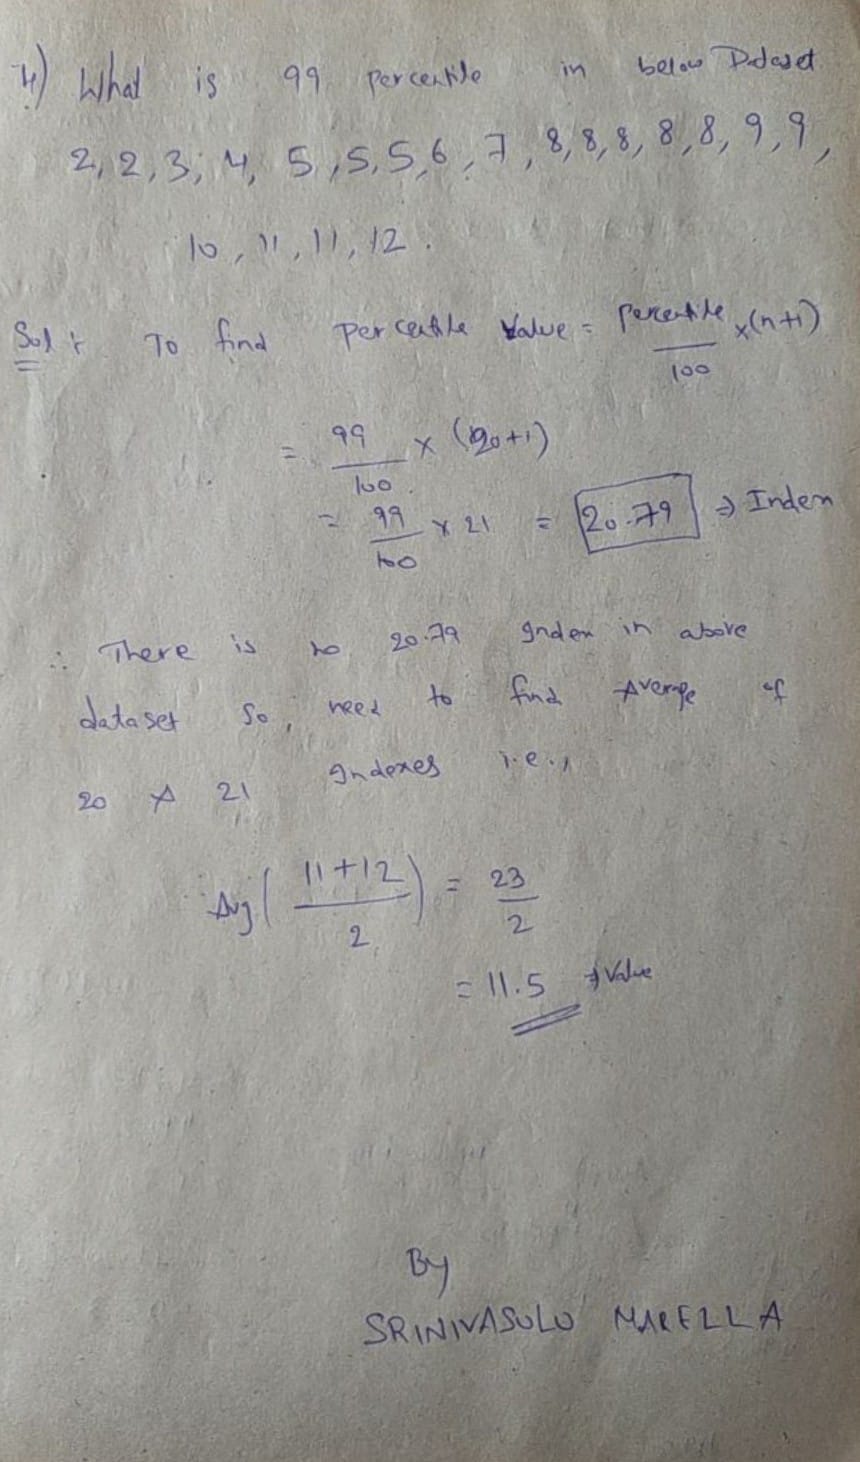 4) What is 99 percentile in below Dataset
2, 2, 3, 4, 5, 5, 5, 6, 7, 8, 8, 8, 8, 8, 9, 9,
10, 11, 11, 12.
Sol : To find percentile value = percentile/100 x (n+1)
= 99/100 x (20+1)
= 99/100 x 21 = 20.79 ⇒ Index
∴ There is no 20.79 Index in above
dataset so, need to find Average of
20 & 21 Indexes i.e.,
Avg ( 11+12 / 2 ) = 23/2
= 11.5 ⇒ Value
By
SRINIVASULU MARELLA